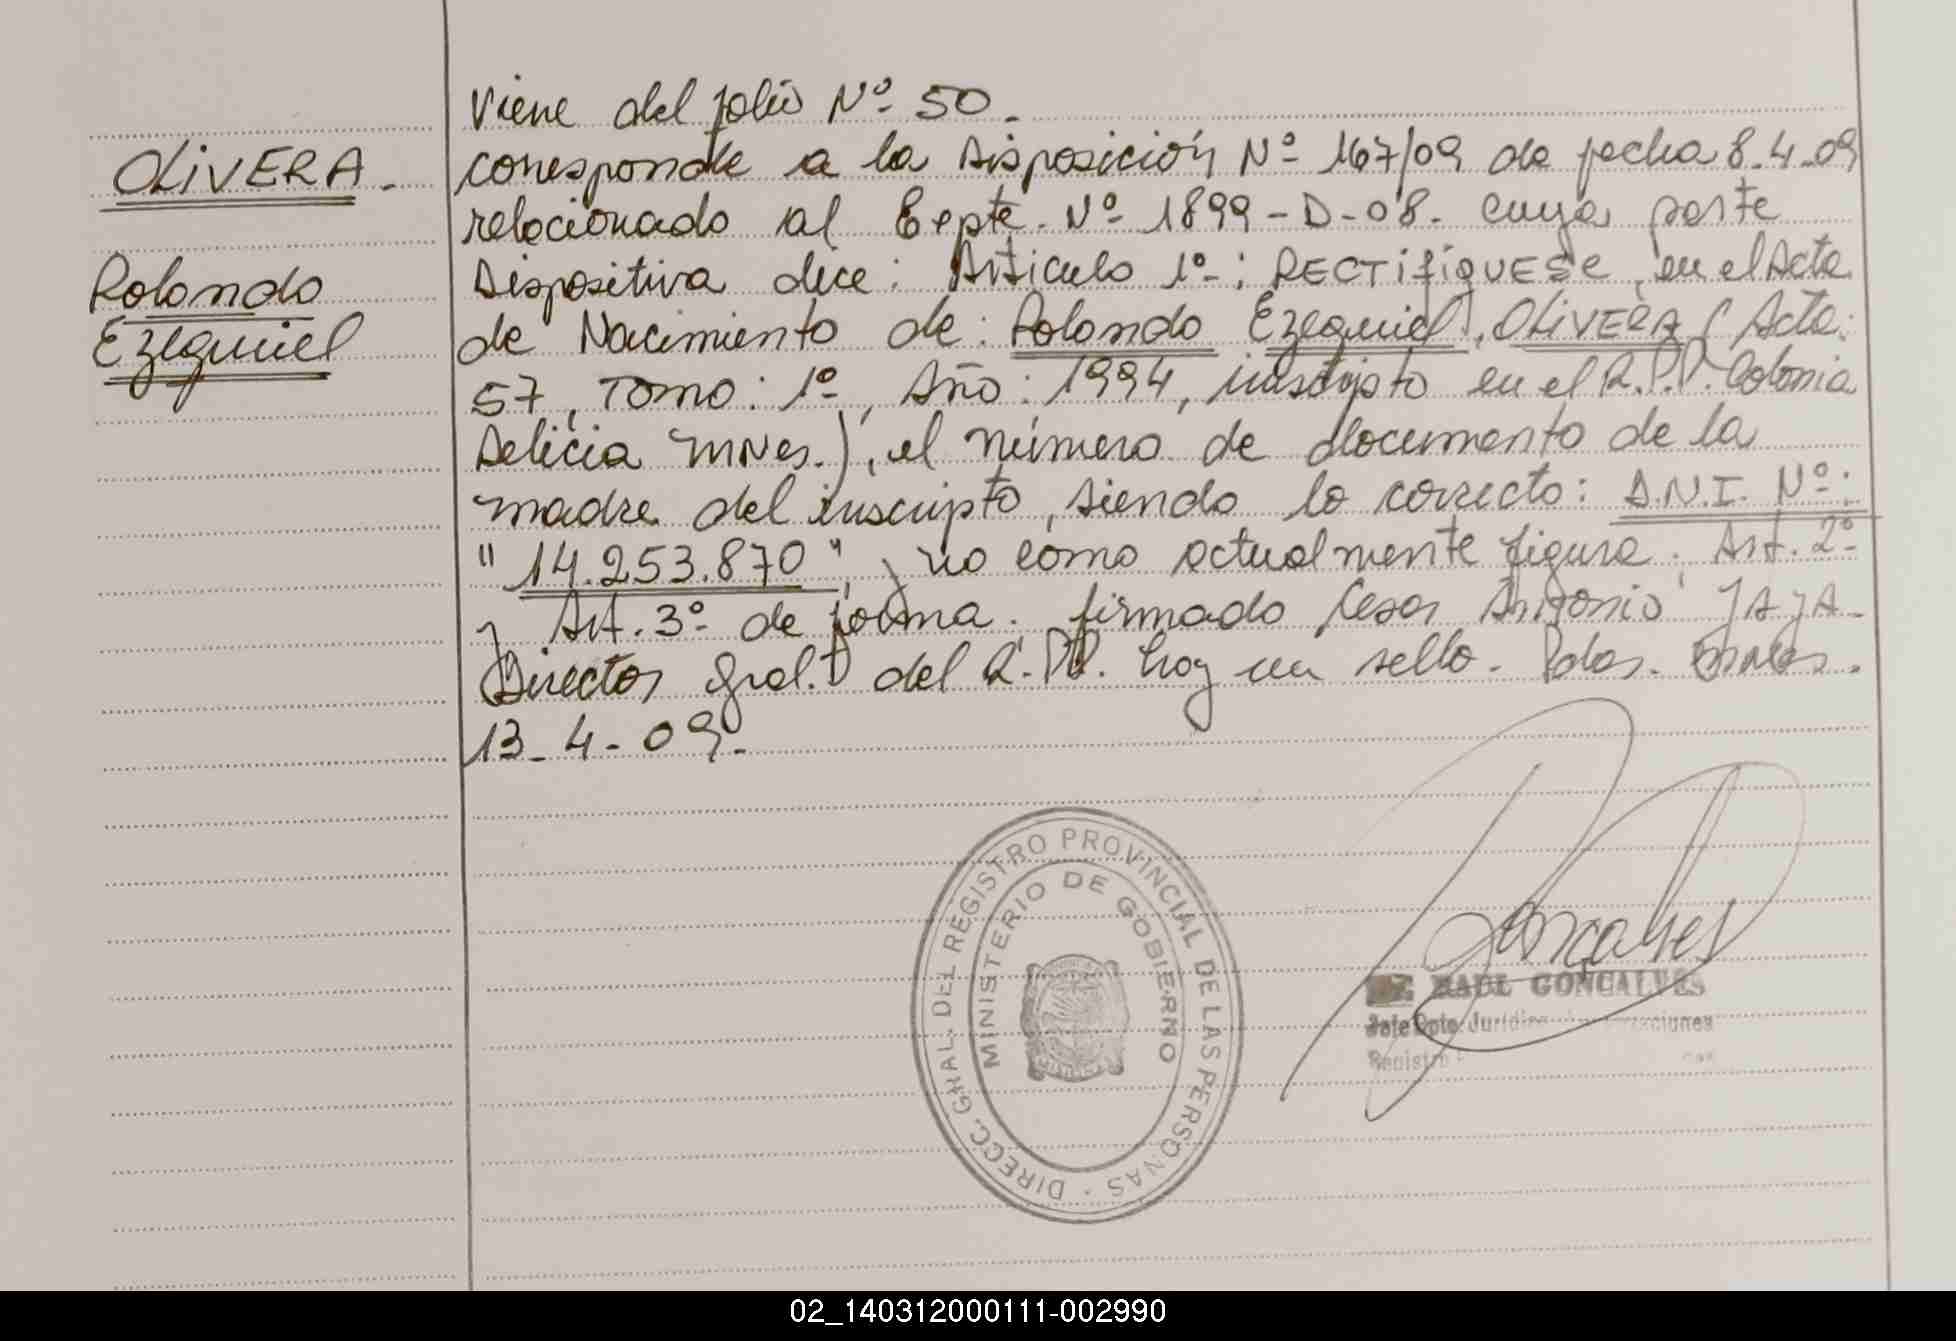 OLIVERA.
Rolando
Ezequiel
Viene del folio Nº 50.
corresponde a la Disposición Nº 167/09 de fecha 8.4.09
relacionado al Expte. Nº 1899-D-08. cuya parte
Dispositiva dice: Articulo 1º: RECTIFIQUESE, en el Acta
de Nacimiento de: Rolando Ezequiel, OLIVERA (Acta:
57, Tomo: 1º, Año: 1994, inscripto en el R.P.P. Colonia
Delicia MNes.), el número de documento de la
madre del inscripto, siendo lo correcto: D.N.I. Nº:
"14.253.870", y no como actualmente figura. Art. 2º
y Art. 3º de forma. firmado Cesar Antonio JAJA.
Director Gral. del R.PP. hay un sello. Pdas. Mnes.
13-4-09.
DIRECC. GRAL. DEL REGISTRO PROVINCIAL DE LAS PERSONAS
MINISTERIO DE GOBIERNO
MISIONES
Goncalves
RAUL GONCALVES
Jefe Dpto. Jurídico
Registro
02_140312000111-002990